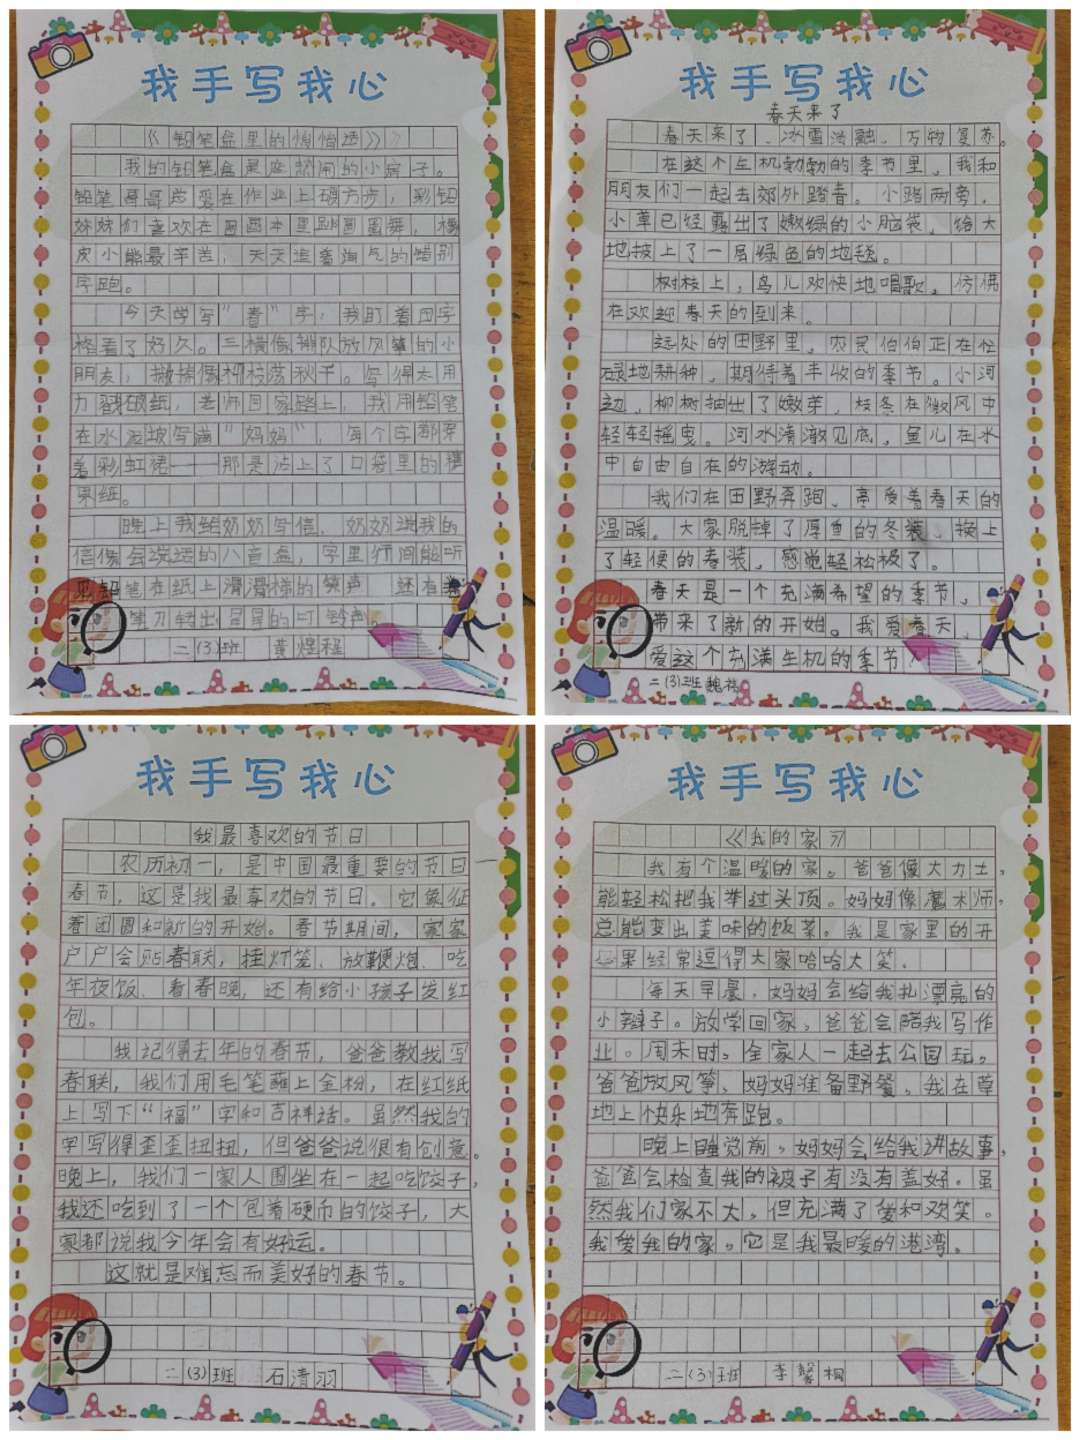 我手写我心
《铅笔盒里的悄悄话》
我的铅笔盒是座热闹的小房子。
铅笔哥哥总爱在作业上踱方步，彩铅
妹妹们喜欢在图画本里跳圆圈舞，橡
皮小熊最辛苦，天天追着淘气的错别
字跑。
今天学写"春"字，我盯着田字
格看了好久。三横像排队放风筝的小
朋友，撇捺像柳枝荡秋千。写得太用
力戳破纸，老师回家路上，我用铅笔
在水泥坡写满"妈妈"，每个字都穿
着彩虹裙——那是沾上了口袋里的糖
果纸。
晚上我给奶奶写信，奶奶说我的
信像会说话的八音盒，字里行间能听
见铅笔在纸上滑滑梯的笑声 还有卷
笔刀转出 的叮铃声。
二(3)班 黄煜程
我手写我心
春天来了
春天来了、冰雪消融、万物复苏。
在这个生机勃勃的季节里，我和
朋友们一起去郊外踏青。小路两旁，
小草已经露出了嫩绿的小脑袋，给大
地披上了一层绿色的地毯。
树枝上，鸟儿欢快地唱歌，仿佛
在欢迎春天的到来。
远处的田野里，农民伯伯正在忙
碌地耕种，期待着丰收的季节。小河
边，柳树抽出了嫩芽，枝条在微风中
轻轻摇曳。河水清澈见底，鱼儿在水
中自由自在的游动。
我们在田野奔跑，享受着春天的
温暖。大家脱掉了厚重的冬装，换上
了轻便的春装，感觉轻松极了。
春天是一个充满希望的季节，
带来了新的开始。我爱春天，
爱这个充满生机的季节！
二(3)班魏
我手写我心
我最喜欢的节日
农历初一，是中国最重要的节日一
春节，这是我最喜欢的节日。它象征
着团圆和新的开始。春节期间，家家
户户会贴春联，挂灯笼、放鞭炮、吃
年夜饭、看春晚，还有给小孩子发红
包。
我记得去年的春节，爸爸教我写
春联，我们用毛笔蘸上金粉，在红纸
上写下"福"字和吉祥话。虽然我的
字写得歪歪扭扭，但爸爸说很有创意。
晚上，我们一家人围坐在一起吃饺子，
我还吃到了一个包着硬币的饺子，大
家都说我今年会有好运。
这就是难忘而美好的春节。
二(3)班 石清羽
我手写我心
《我的家》
我有个温暖的家。爸爸像大力士，
能轻松把我举过头顶。妈妈像魔术师，
总能变出美味的饭菜。我是家里的开
心果经常逗得大家哈哈大笑。
每天早晨，妈妈会给我扎漂亮的
小辫子。放学回家，爸爸会陪我写作
业。周末时，全家人一起去公园玩，
爸爸放风筝、妈妈准备野餐，我在草
地上快乐地奔跑。
晚上睡觉前，妈妈会给我讲故事，
爸爸会检查我的被子有没有盖好。虽
然我们家不大，但充满了爱和欢笑。
我爱我的家，它是我最暖的港湾。
二(3)班 李馨桐